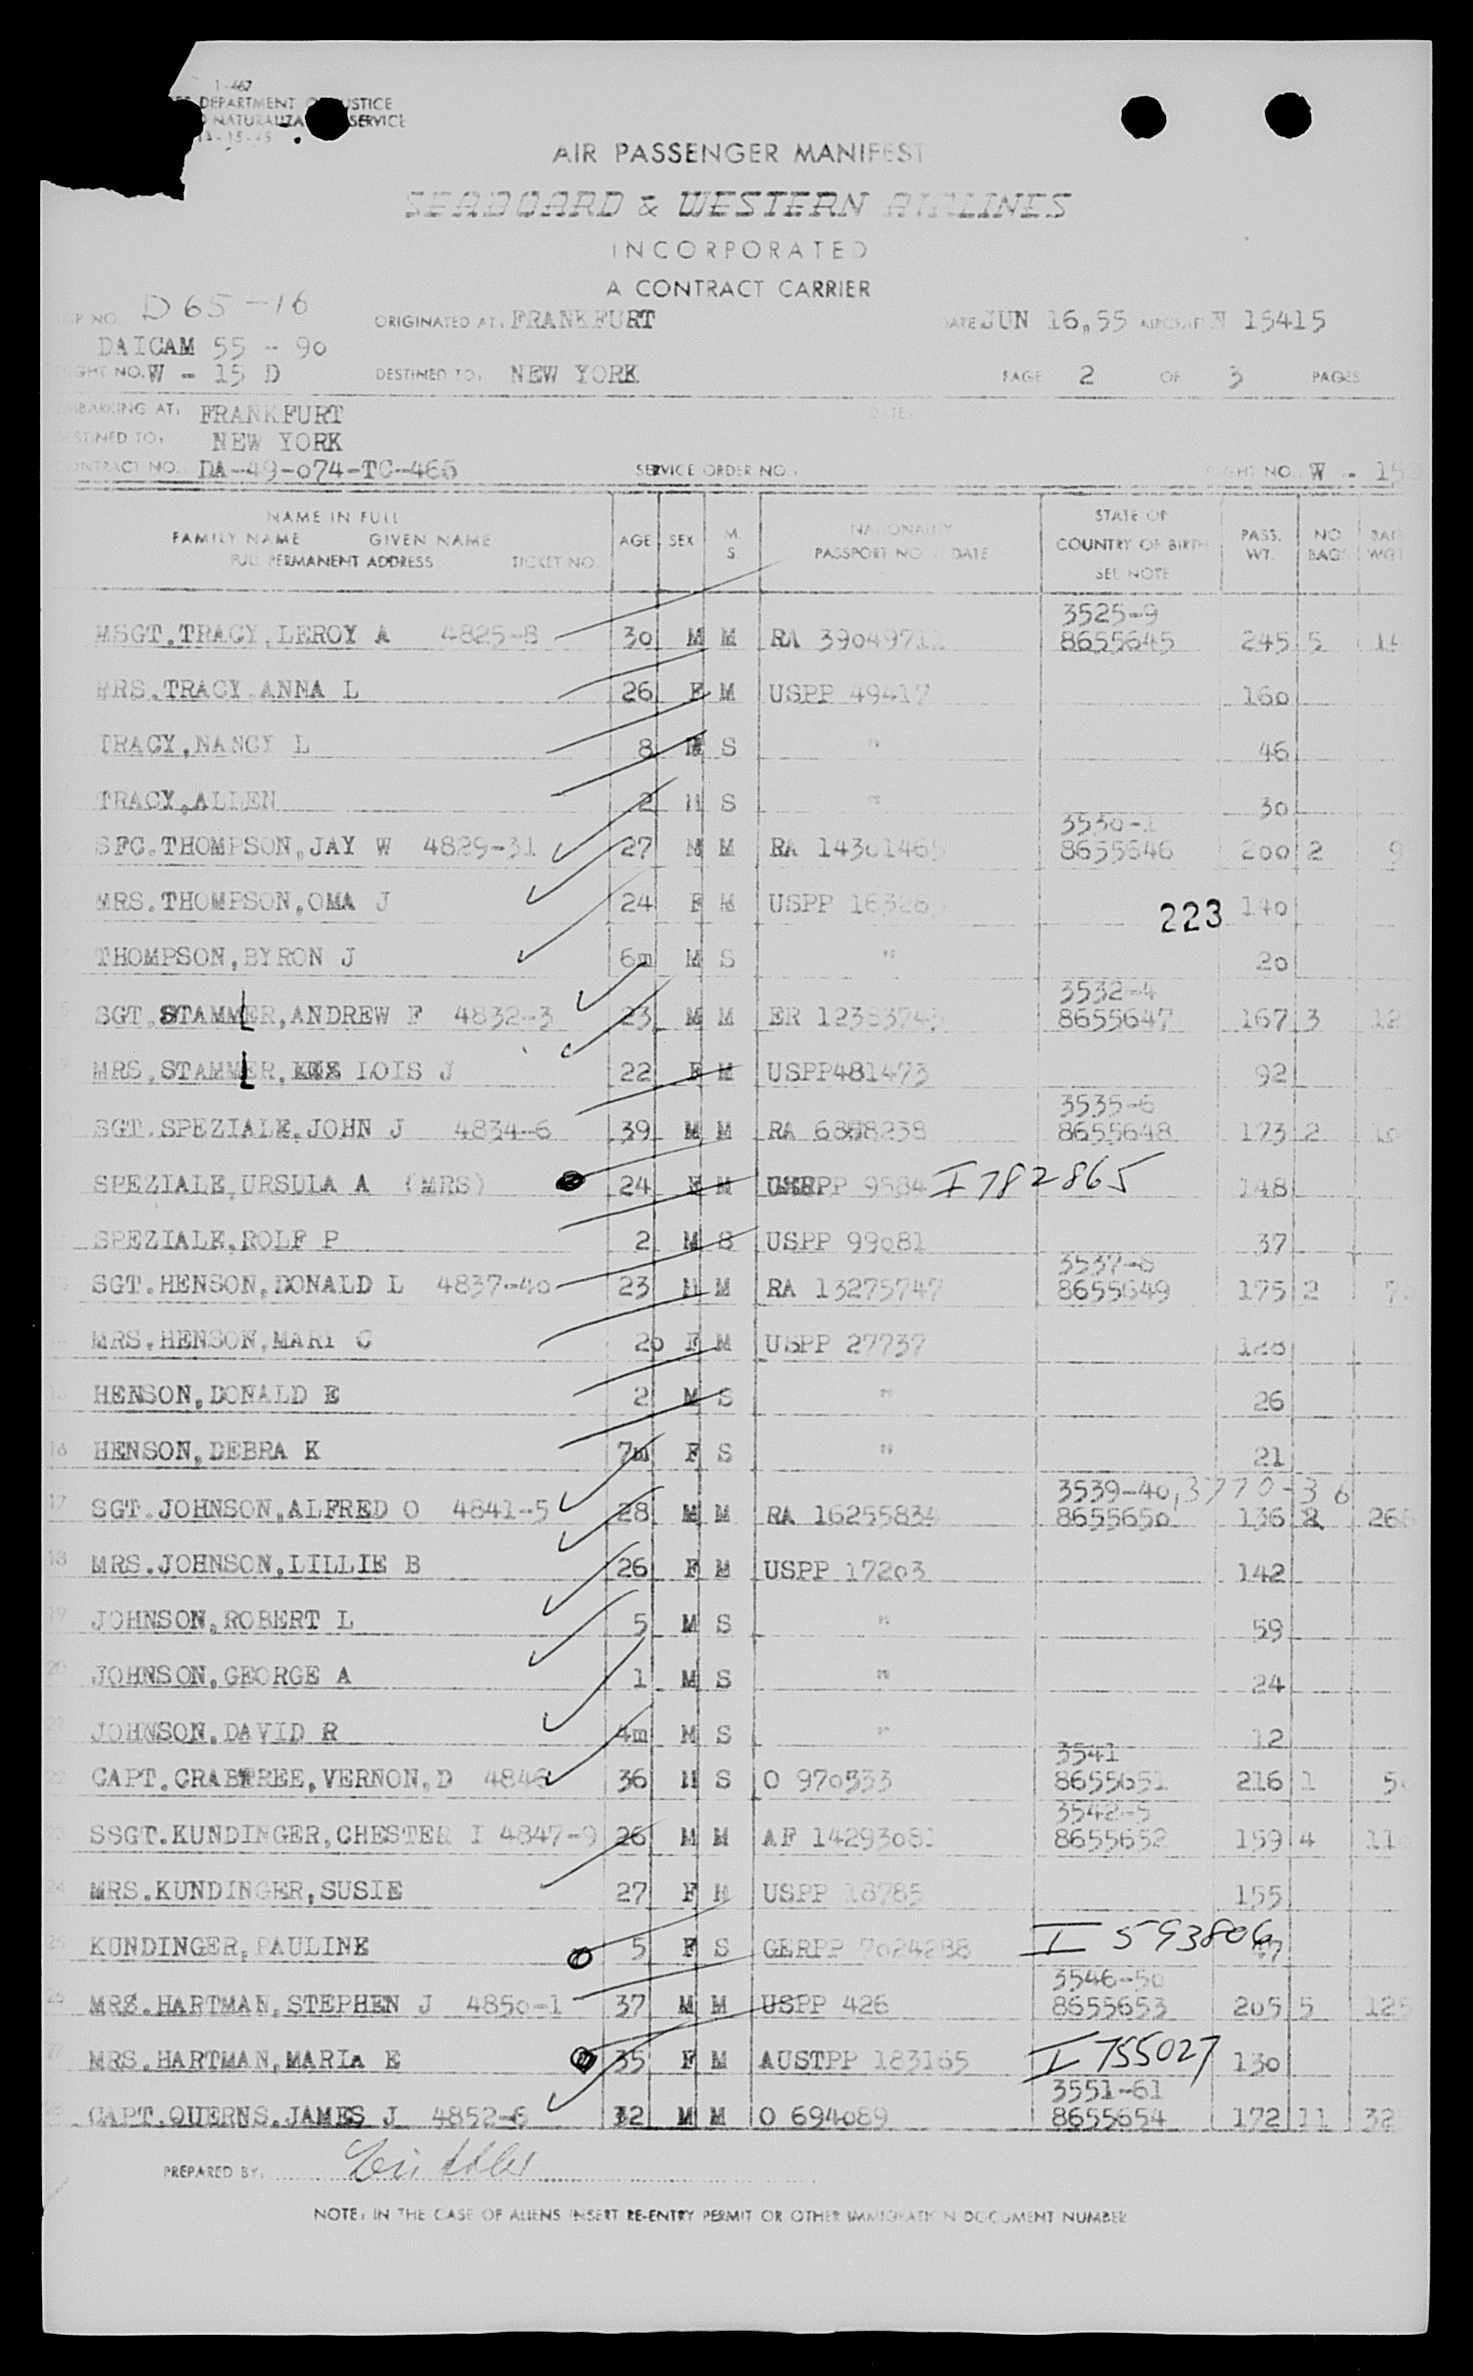 1-467
DEPARTMENT OF JUSTICE
NATURALIZA SERVICE
AIR PASSENGER MANIFEST
SEABOARD & WESTERN AIRLINES
INCORPORATED
A CONTRACT CARRIER
NO. D65-16 ORIGINATED AT: FRANKFURT DATE JUN 16,55 AIRCRAFT N 15415
DAICAM 55 - 90
GHT NO. W - 15 D DESTINED TO: NEW YORK PAGE 2 OF 3 PAGES
BARKING AT: FRANKFURT DATE:
STINED TO: NEW YORK
ONTRACT NO. DA-49-074-TC-465 SERVICE ORDER NO. GHT NO. W - 15
NAME IN FULL
FAMILY NAME GIVEN NAME
FULL PERMANENT ADDRESS TICKET NO. AGE SEX M. S. NATIONALITY PASSPORT NO DATE STATE OF COUNTRY OF BIRTH SEE NOTE PASS. WT. NO BAGS BAG WGT
3525-9
MSGT.TRACY,LEROY A 4825-8 30 M M RA 3904971 8655645 245 5 14
MRS.TRACY,ANNA L 26 F M USPP 49417 160
TRACY,NANCY L 8 F S " 46
TRACY,ALLEN 2 M S " 30
3530-1
SFC.THOMPSON,JAY W 4829-31 27 M M RA 14301465 8655646 200 2 9
MRS.THOMPSON,OMA J 24 F M USPP 16326 140
223
THOMPSON,BYRON J 6m M S " 20
3532-4
SGT.STAMMLER,ANDREW F 4832-3 23 M M ER 1238374 8655647 167 3 12
MRS.STAMMLER, LOIS J 22 F M USPP481473 92
3535-6
SGT.SPEZIALE,JOHN J 4834-6 39 M M RA 6888238 8655648 173 2 10
SPEZIALE,URSULA A (MRS) 24 F M PP 9584 I 782865 148
SPEZIALE,ROLF P 2 M S USPP 99081 37
3537-8
SGT.HENSON,DONALD L 4837-40 23 M M RA 13275747 8655649 175 2 7
MRS.HENSON,MARY C 20 F M USPP 27737 128
HENSON,DONALD E 2 M S " 26
16 HENSON,DEBRA K 7m F S " 21
3539-40,3770-36
17 SGT.JOHNSON,ALFRED O 4841-5 28 M M RA 16255834 8655650 136 2 26
18 MRS.JOHNSON,LILLIE B 26 F M USPP 17203 142
19 JOHNSON,ROBERT L 5 M S " 59
20 JOHNSON,GEORGE A 1 M S " 24
21 JOHNSON,DAVID R 4m M S " 12
3541
22 CAPT.CRABTREE,VERNON,D 4846 36 M S O 970533 8655651 216 1 5
3542-5
23 SSGT.KUNDINGER,CHESTER I 4847-9 26 M M AF 14293081 8655652 159 4 11
24 MRS.KUNDINGER,SUSIE 27 F M USPP 18785 155
25 KUNDINGER,PAULINE 5 F S GERPP 7024288 I 593806 47
3546-50
26 MRS.HARTMAN,STEPHEN J 4850-1 37 M M USPP 426 8655653 205 5 125
27 MRS.HARTMAN,MARIa E 35 F M AUSTPP 183165 I 755027 130
3551-61
28 CAPT.QUERNS,JAMES J 4852-6 32 M M O 694089 8655654 172 11 32
PREPARED BY:
NOTE: IN THE CASE OF ALIENS INSERT RE-ENTRY PERMIT OR OTHER IMMIGRATION DOCUMENT NUMBER